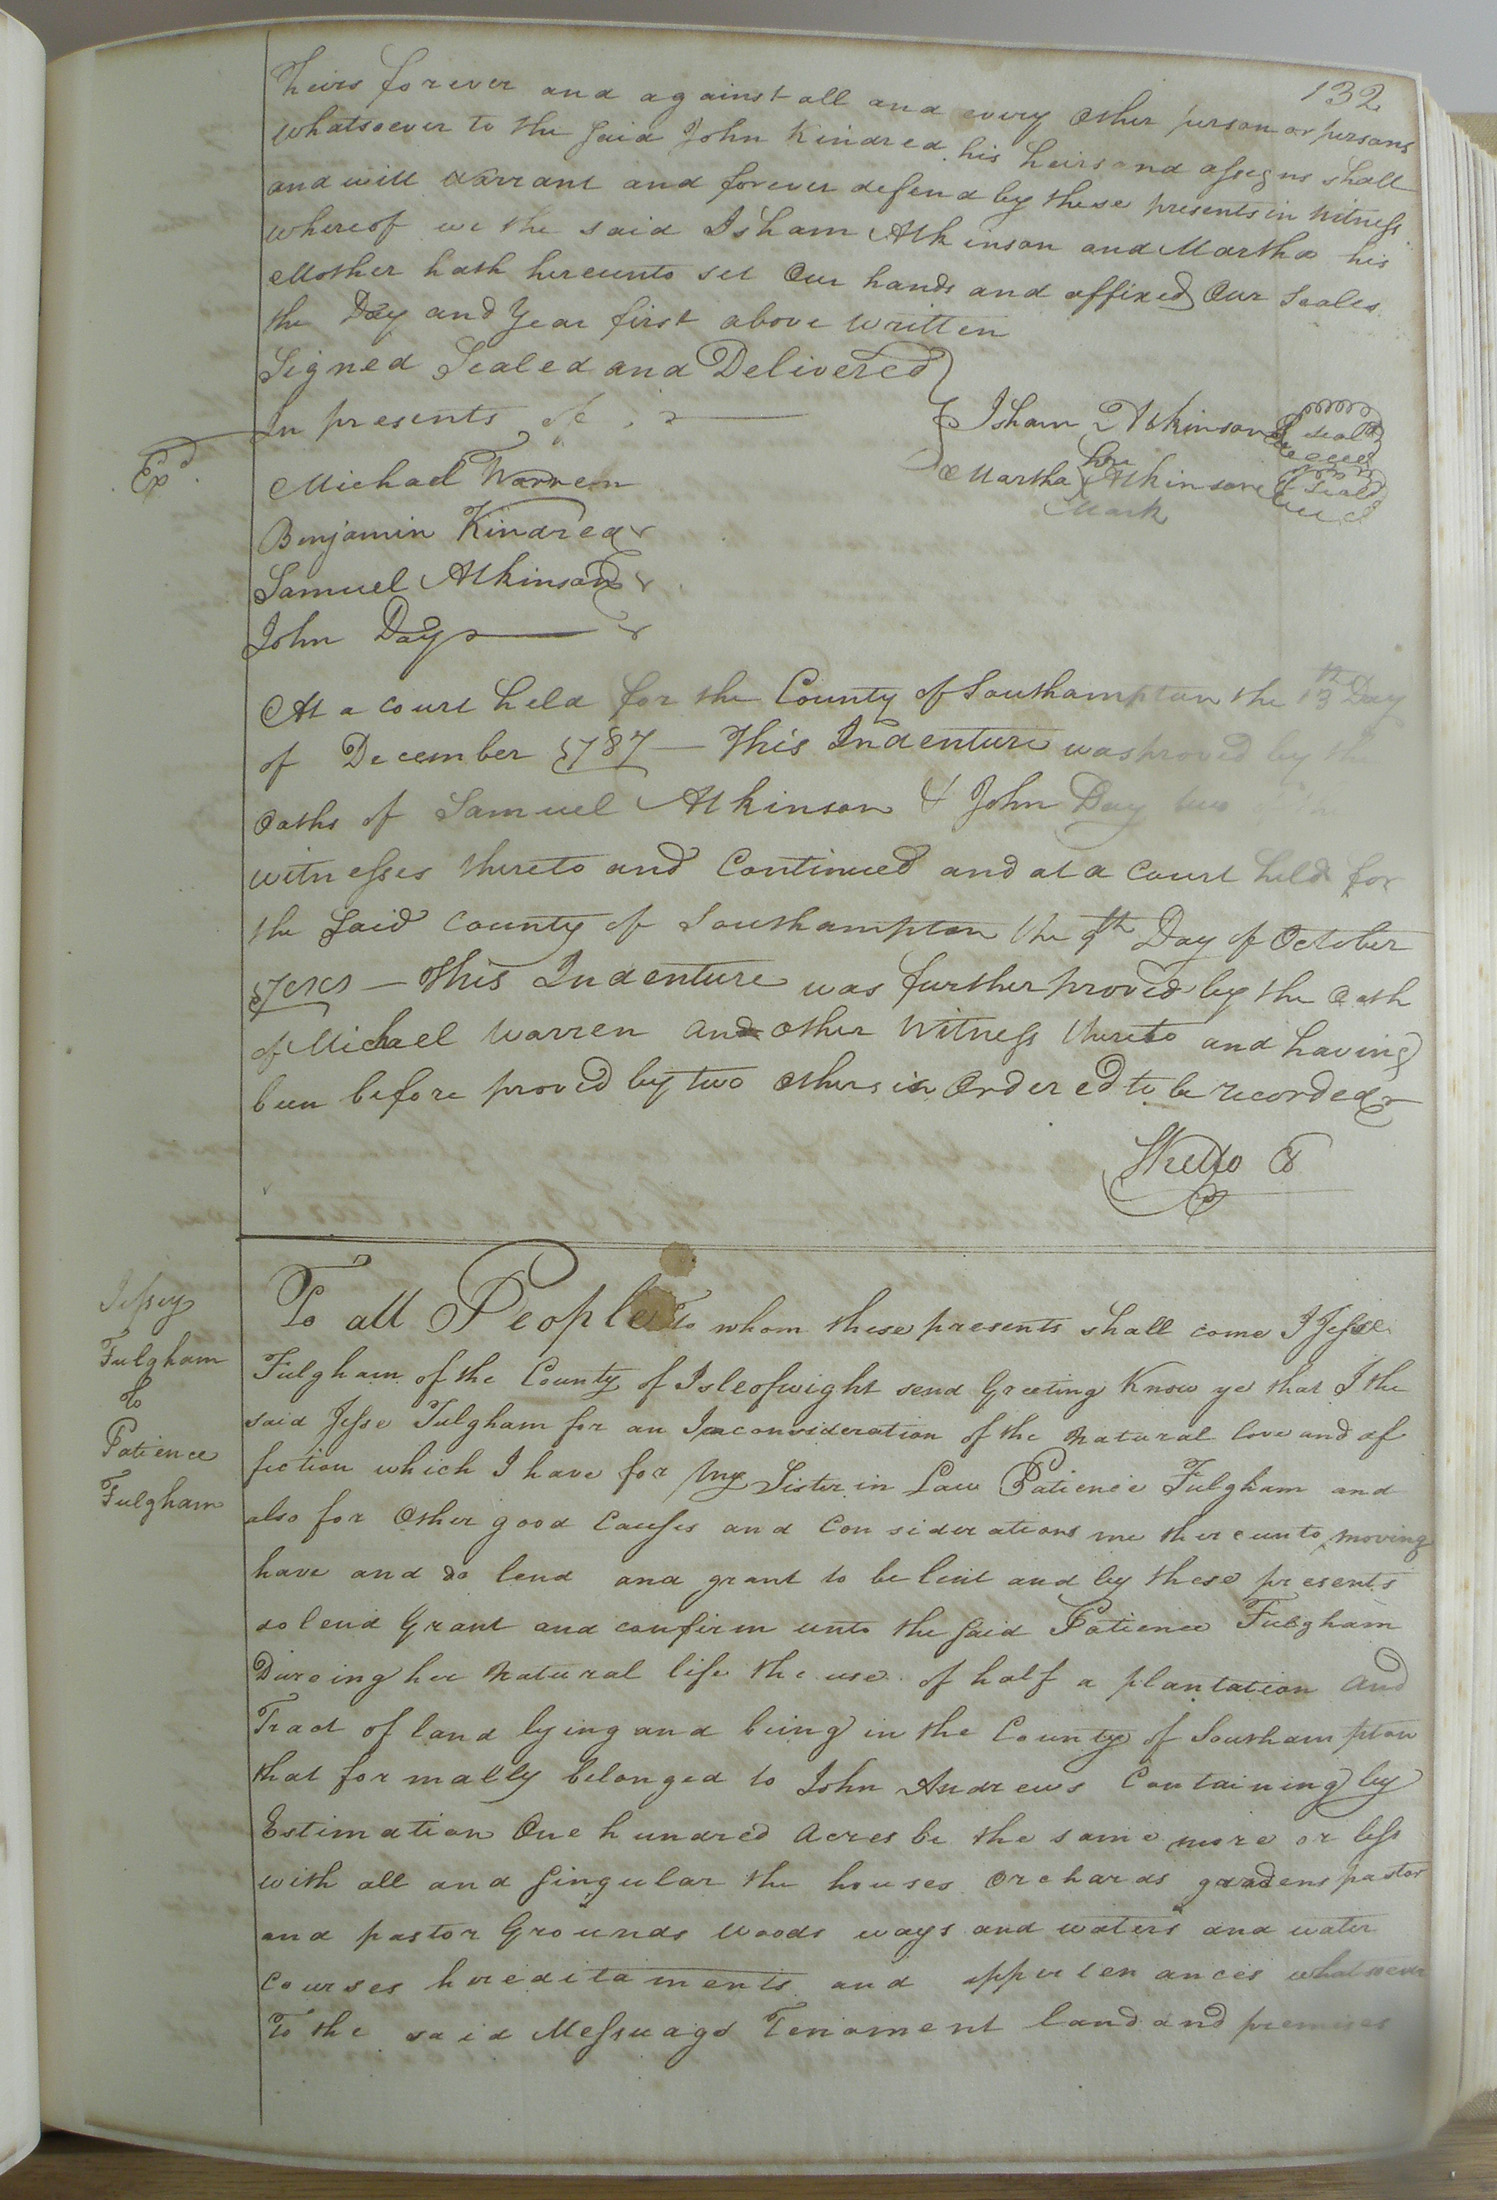 132
heirs forever and against all and every other person or persons
whatsoever to the said John Kindred his heirs and assigns shall
and will warrant and forever defend by these presents in witness
whereof we the said Isham Atkinson and Martha his
Mother hath hereunto set Our hands and affixed Our Seales
the Day and Year first above written
Signed Sealed and Delivered
In presents of
Isham Atkinson Seal
Exd
Michael Warren
her
Martha Atkinson Seal
Mark
Benjamin Kindred
Samuel Atkinson
John Day
At a court held for the County of Southampton the 13th Day
of December 1787 – This Indenture was proved by the
Oaths of Samuel Atkinson & John Day two
witnesses thereto and Continued and at a Court held for
the said County of Southampton the 9th Day of October
This Indenture was further proved by the Oath
of Michael Warren and other Witness thereto and having
been before proved by two others is Ordered to be recorded

Jessey
Fulgham
To
Patience
Fulgham
To all People To whom these presents shall come I Jesse
Fulgham of the County of Isleofwight send Greeting Know ye that I the
said Jesse Fulgham for an In consideration of the Natural love and af
fection which I have for My Sister in Law Patience Fulgham and
also for Other good Causes and Considerations me thereunto moving
have and do lend and grant to be lent and by these presents
do lend Grant and confirm unto the said Patience Fulgham
Dureing her Natural life the use of half a plantation and
Tract of land lying and being in the County of Southampton
that formally belonged to John Andrews Containing by
Estimation One hundred Acres be the same more or less
with all and singular the houses Orchards gardens pastor
and pastor Grounds Woods ways and waters and water
Courses hereditaments and appurtenances whatsoever
To the said Messuage Tenament land and premises